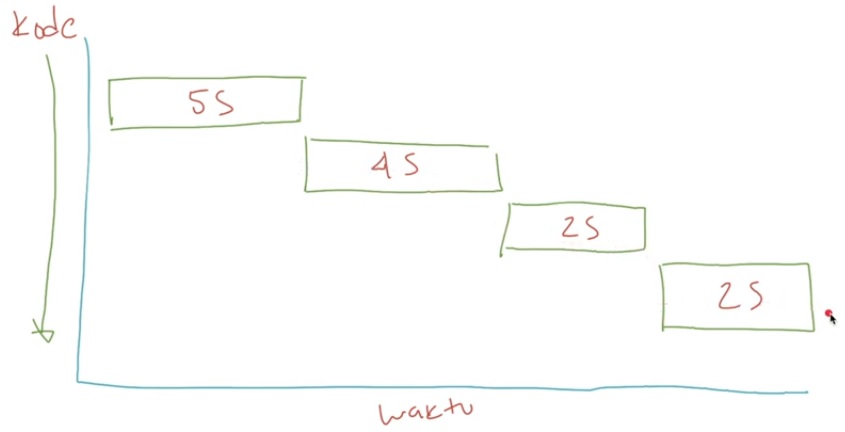 Kode
5S
4S
2S
2S
Waktu